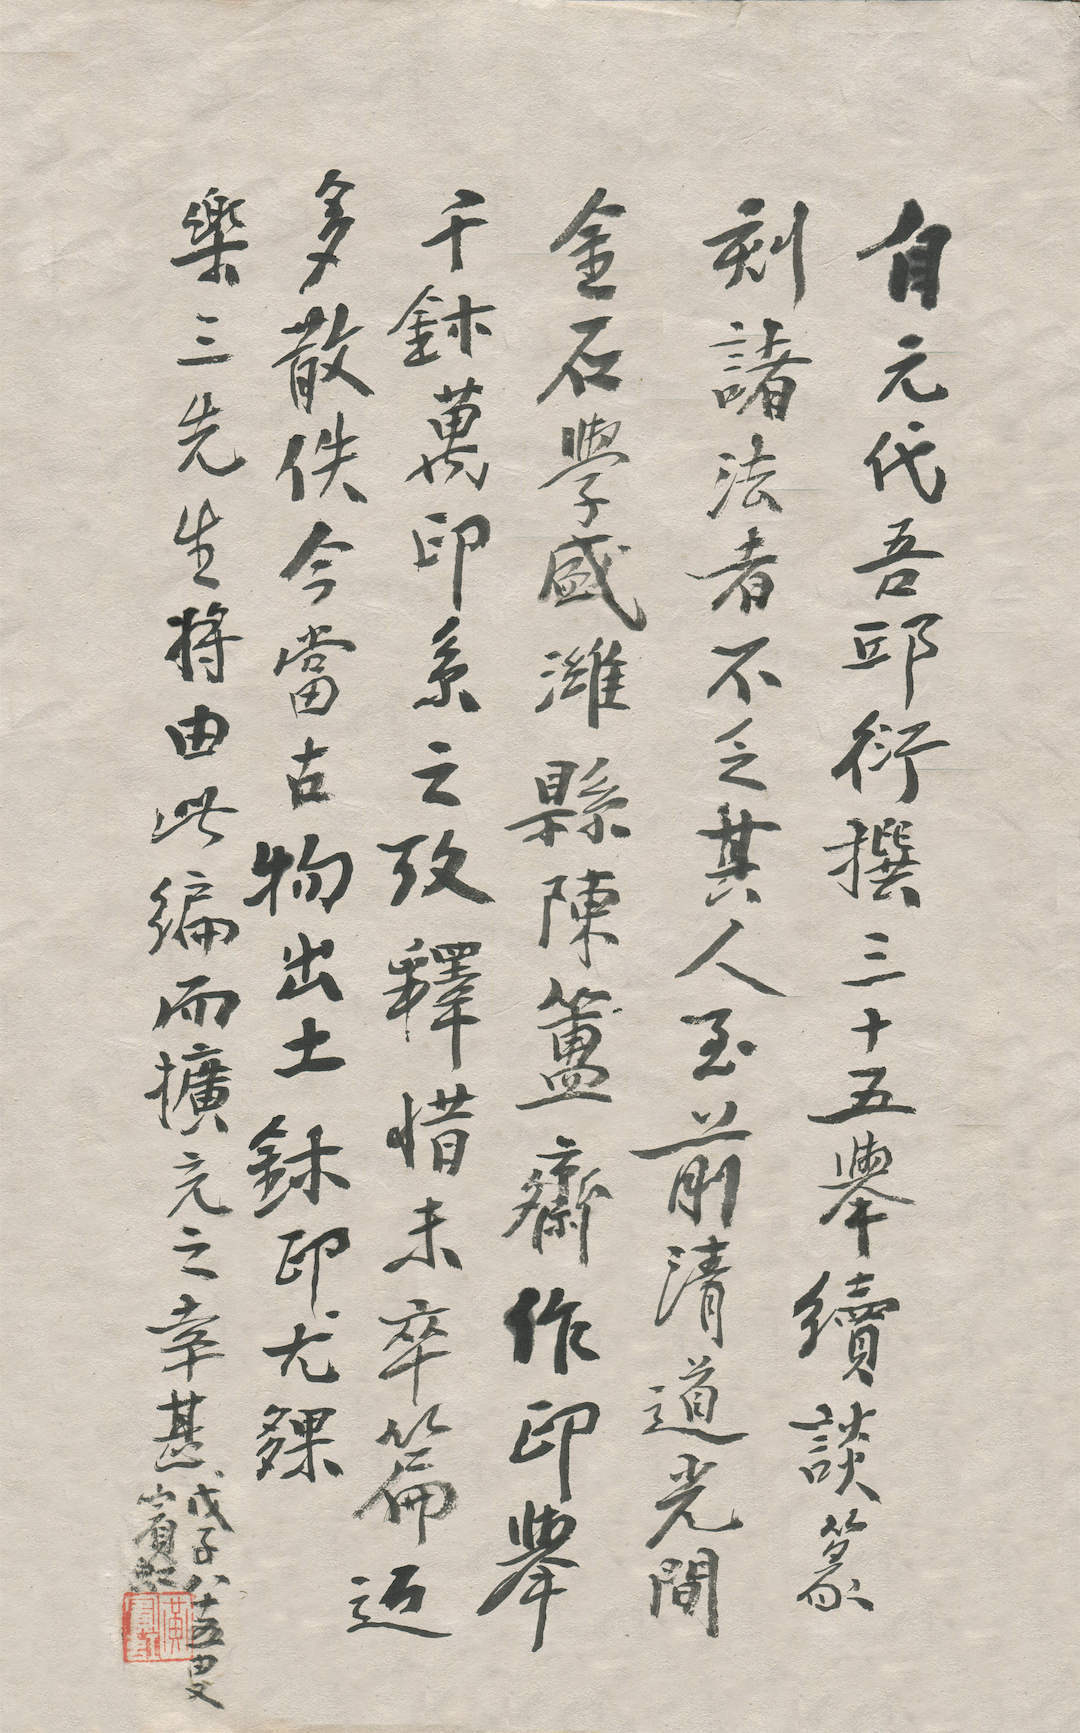 自元代吾邱衍撰三十五舉續談篆
刻諸法者不乏其人至前清道光間
金石學盛濰縣陳簠齋作印舉
千鉥萬印系之攷釋惜未卒篇近
多散佚今當古物出土鉥印尤夥
樂三先生將由此編而擴充之幸甚
戊子八十五叟
賓虹